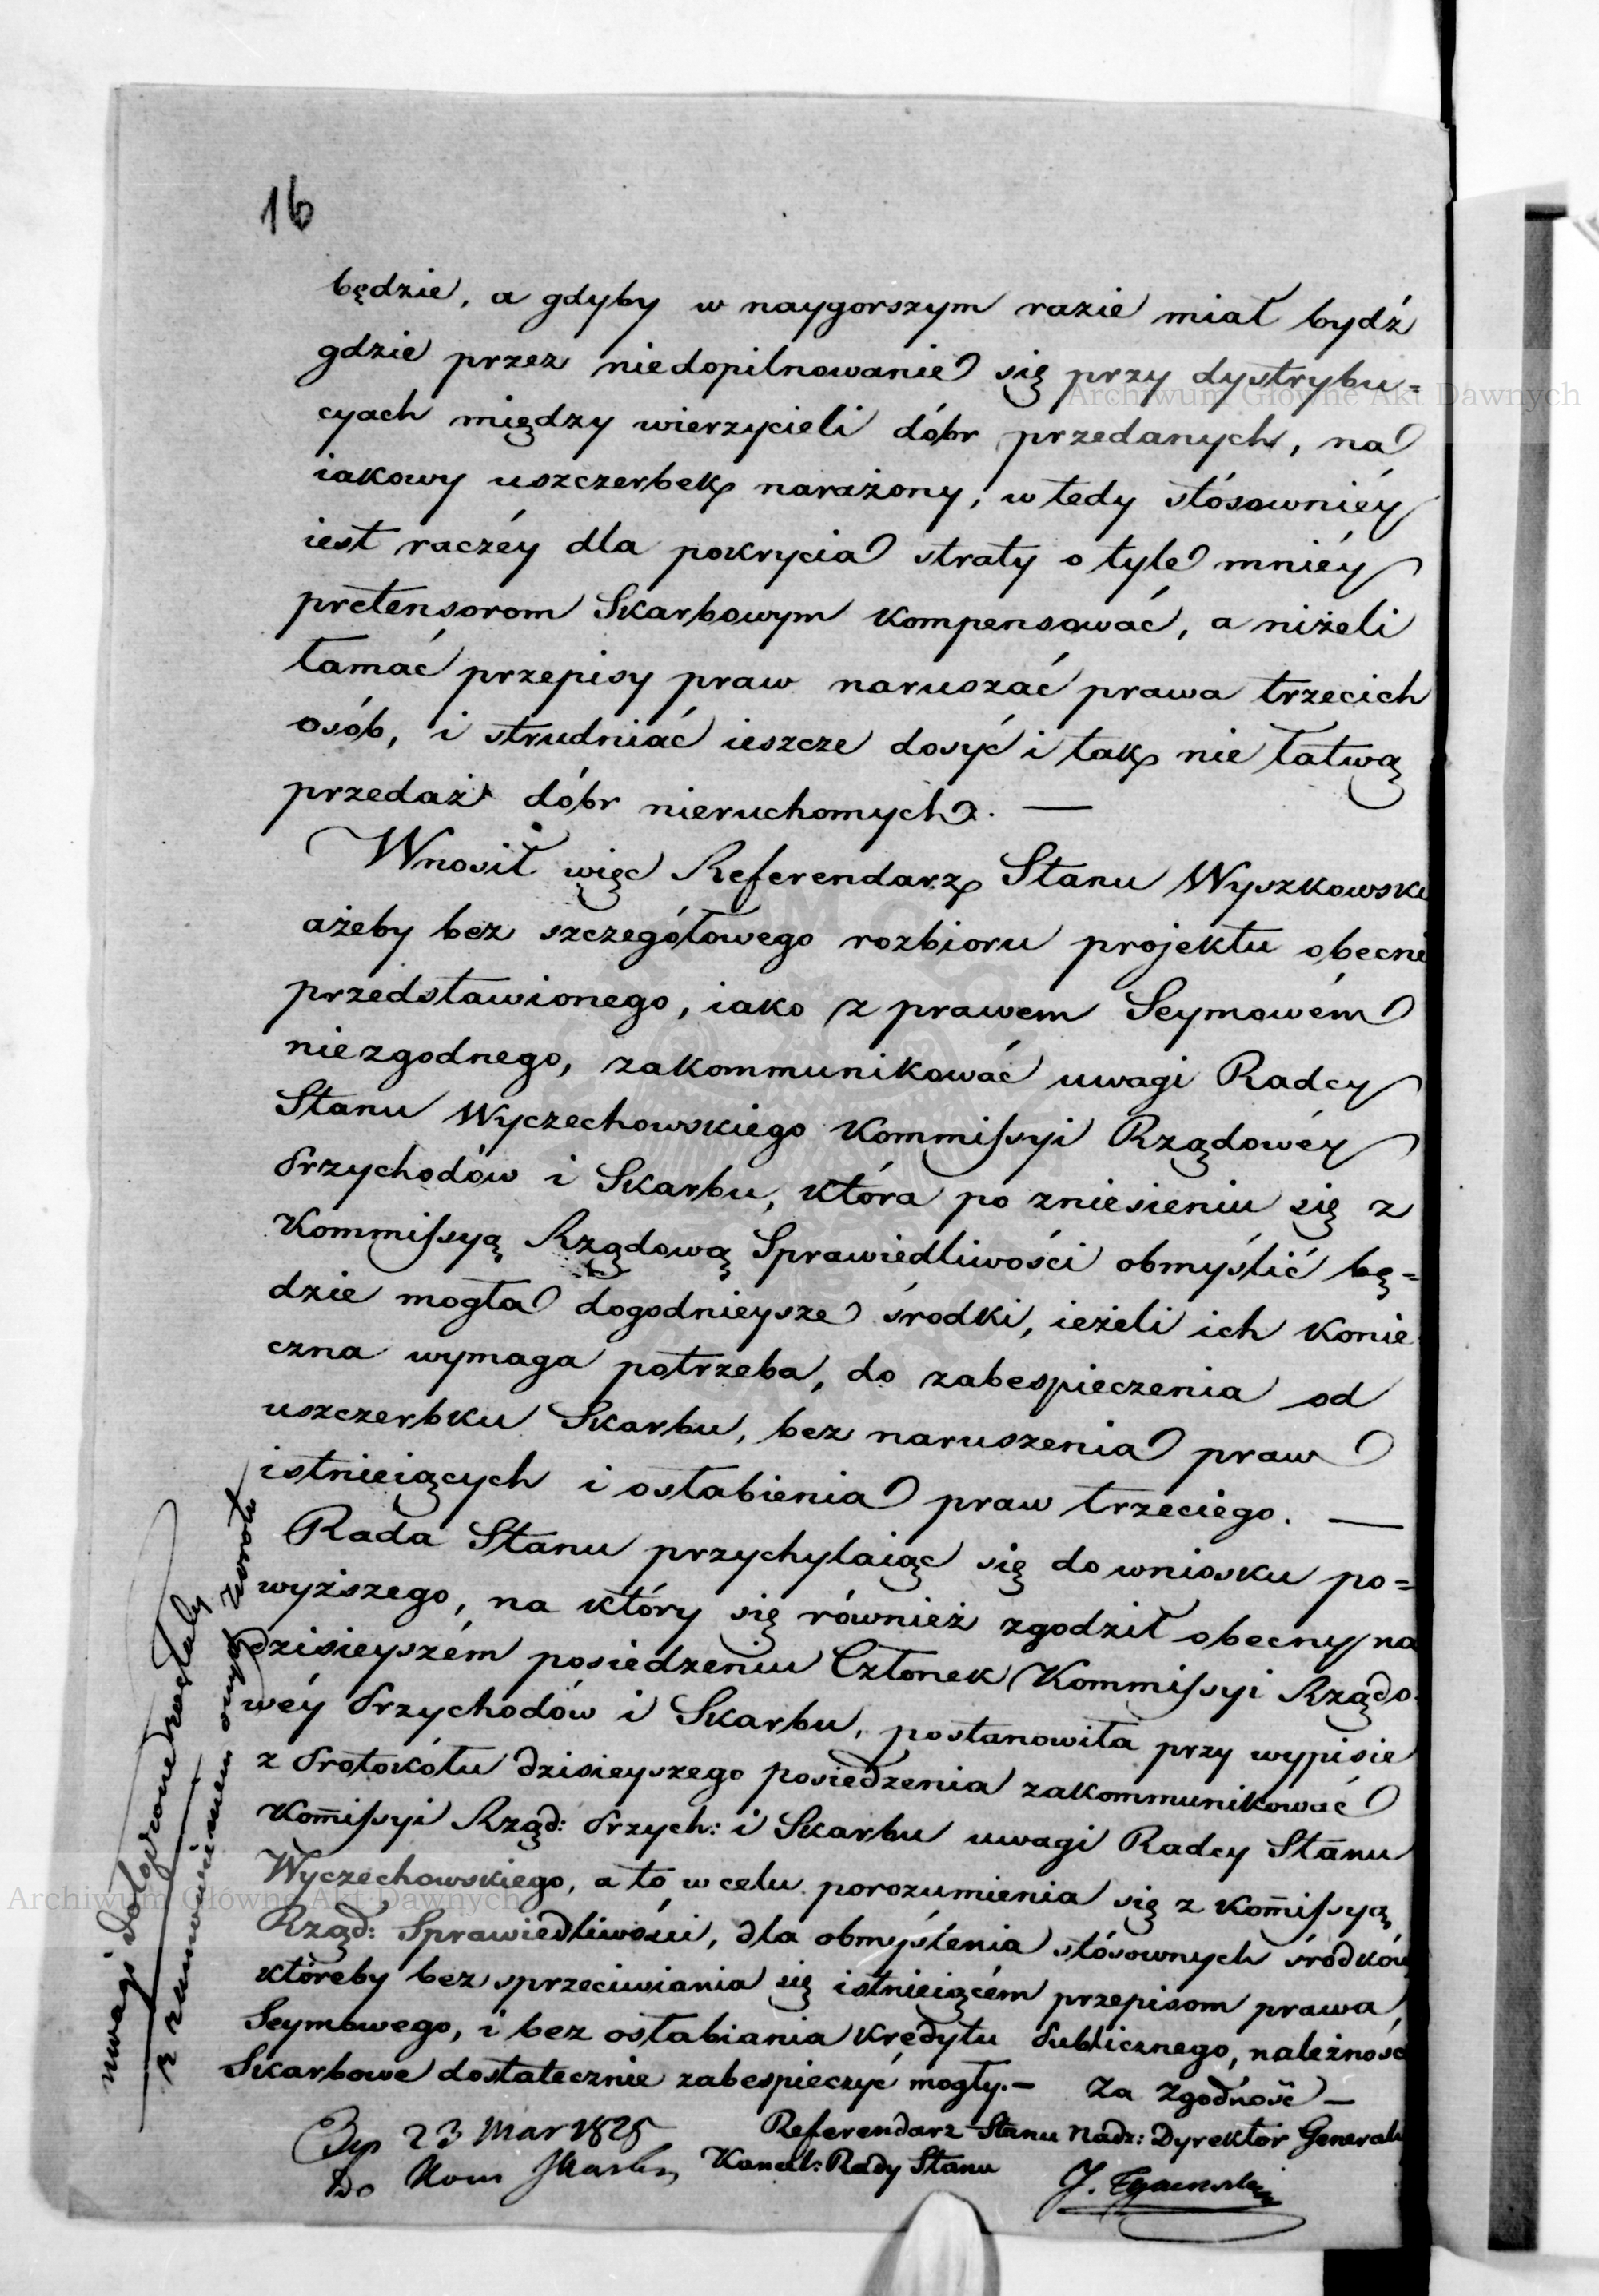 16
będzie, a gdyby w naygorszym razie miał bydź
gdzie przez niedopilnowanie się przy dystrybu=
cyach między wierzycieli dóbr przedanych, na
iakowy uszczerbek narażony, wtedy stósowniéy
iest raczéy dla pokrycia straty o tyle mniéy
pretensorom Skarbowym kompensować, a niżeli
łamać przepisy praw naruszać prawa trzecich
osób, i strudniać ieszcze dosyć i tak nie łatwą
przedaż dóbr nieruchomych. —
Wnosił więc Referendarz Stanu Wyszkowski
ażeby bez szczegółowego rozbioru projektu obecnie
przedstawionego, iako z prawem Seymowém
niezgodnego, zakommunikować uwagi Radcy
Stanu Wyczechowskiego Kommissyi Rządowéy
Przychodów i Skarbu, która po zniesieniu się z
Kommissyą Rządową Sprawiedliwości obmyślić bę=
dzie mogła dogodnieysze środki, ieżeli ich konie
czna wymaga potrzeba, do zabespieczenia od
uszczerbku Skarbu, bez naruszenia praw
istnieiących i osłabienia praw trzeciego. —
Rada Stanu przychylaiąc się do wniosku po=
wyższego, na który się również zgodził obecny na
dzisieyszém posiedzeniu Członek Kommissyi Rządo
wéy Przychodów i Skarbu, postanowiła przy wypisie
z Protokółu dzisieyszego posiedzenia zakommunikować
Kom̄issyi Rząd: Przych: i Skarbu uwagi Radcy Stanu
Wyczechowskiego, a to w celu porozumienia się z Kom̄issyą
Rząd: Sprawiedliwości, dla obmyślenia stósownych środków
któreby bez sprzeciwiania się istnieiącém przepisom prawa
Seymowego, i bez osłabiania kredytu Publicznego, należności
Skarbowe dostatecznie zabespieczyć mogły.— Za Zgodność —
Referendarz Stanu Nadz: Dyrektor Generalny
Kancel: Rady Stanu
23 Mar 1825
Do Kom Skarbu
uwagi dołączone zostały
z zamówieniem onych zwrotu
Archiwum Główne Akt Dawnych
Archiwum Główne Akt Dawnych